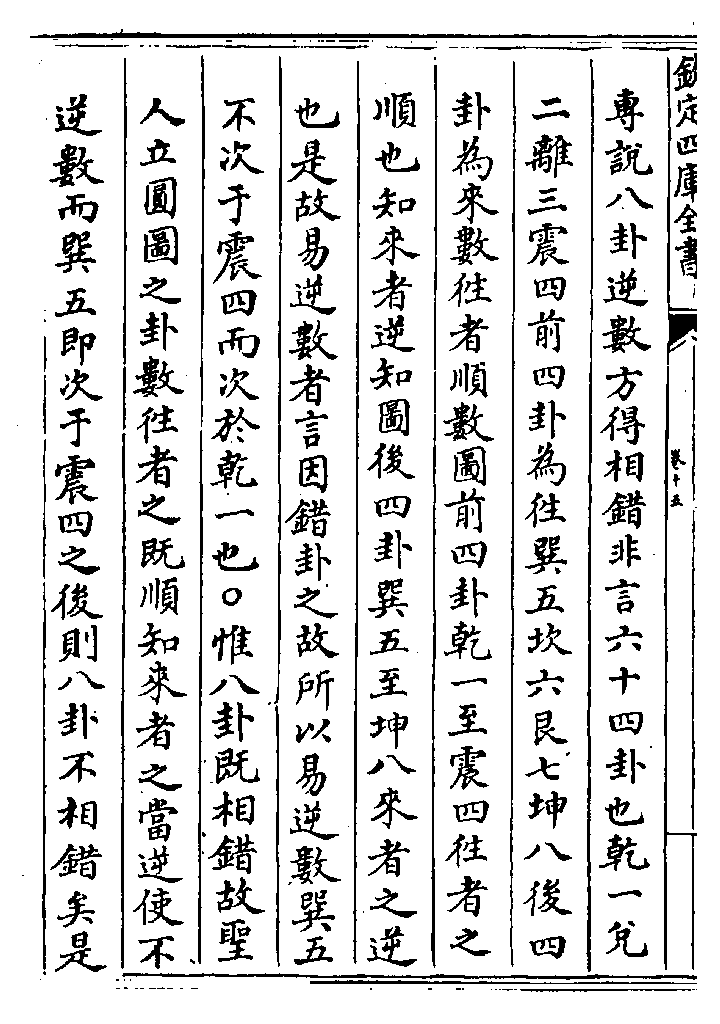 欽定四庫全書
卷十五
專說八卦逆數方得相錯非言六十四卦也乾一兌
二離三震四前四卦為徃巽五坎六艮七坤八後四
卦為來數徃者順數圖前四卦乾一至震四徃者之
順也知來者逆知圖後四卦巽五至坤八來者之逆
也是故易逆數者言因錯卦之故所以易逆數巽五
不次于震四而次於乾一也○惟八卦既相錯故聖
人立圓圖之卦數徃者之既順知來者之當逆使不
逆數而巽五即次于震四之後則八卦不相錯矣是